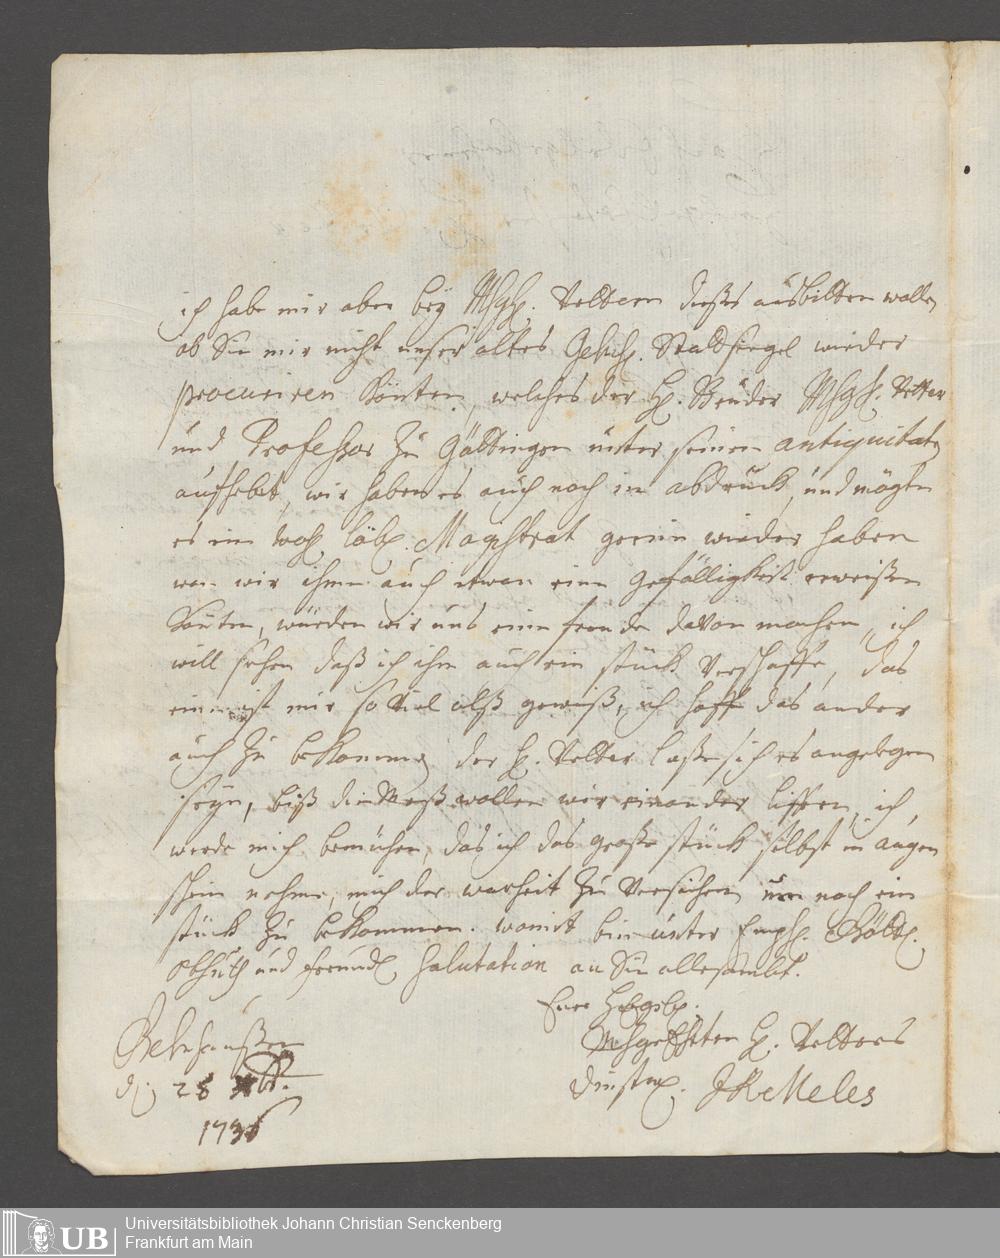 ich habe mir aber bey MhgH. Vettern dießes ausbitten wollen
ob Sie mir nicht unser altes Gelnh. Stadtsiegel wieder
procuriren könten, welches der H. Bruder MhgH. Vetter
und Professor zu Göttingen unter seinen antiquitaten
aufhebet, wir haben es auch noch in abdruck, und mögte
es ein wohl löbl. Magistrat gerne wieder haben
wan wir ihme auch etwan eine gefälligkeit erweißen
könten, würden wir uns eine freude davon machen, ich
will sehen daß ich ihm auch ein stück verschaffe, das
eine ist mir so viel alß gewiß, ich hoffe das ander
auch zu bekommen der H. Vetter laße sich es angelegen
seyn, biß die Meß wollen wir einander liffern, ich
werde mich bemühen, das ich das große stück selbst in augen
schein nehme, mich der warheit zu versichern um noch ein
stück zu bekommen. womit bin unter Empf. Göttl.
Obhuth und freundl. salutation an Sie allesambt.
Euer
MhgeEhrten H. Vetters
Gelnhaußen
d. 28
dienstw.
1736